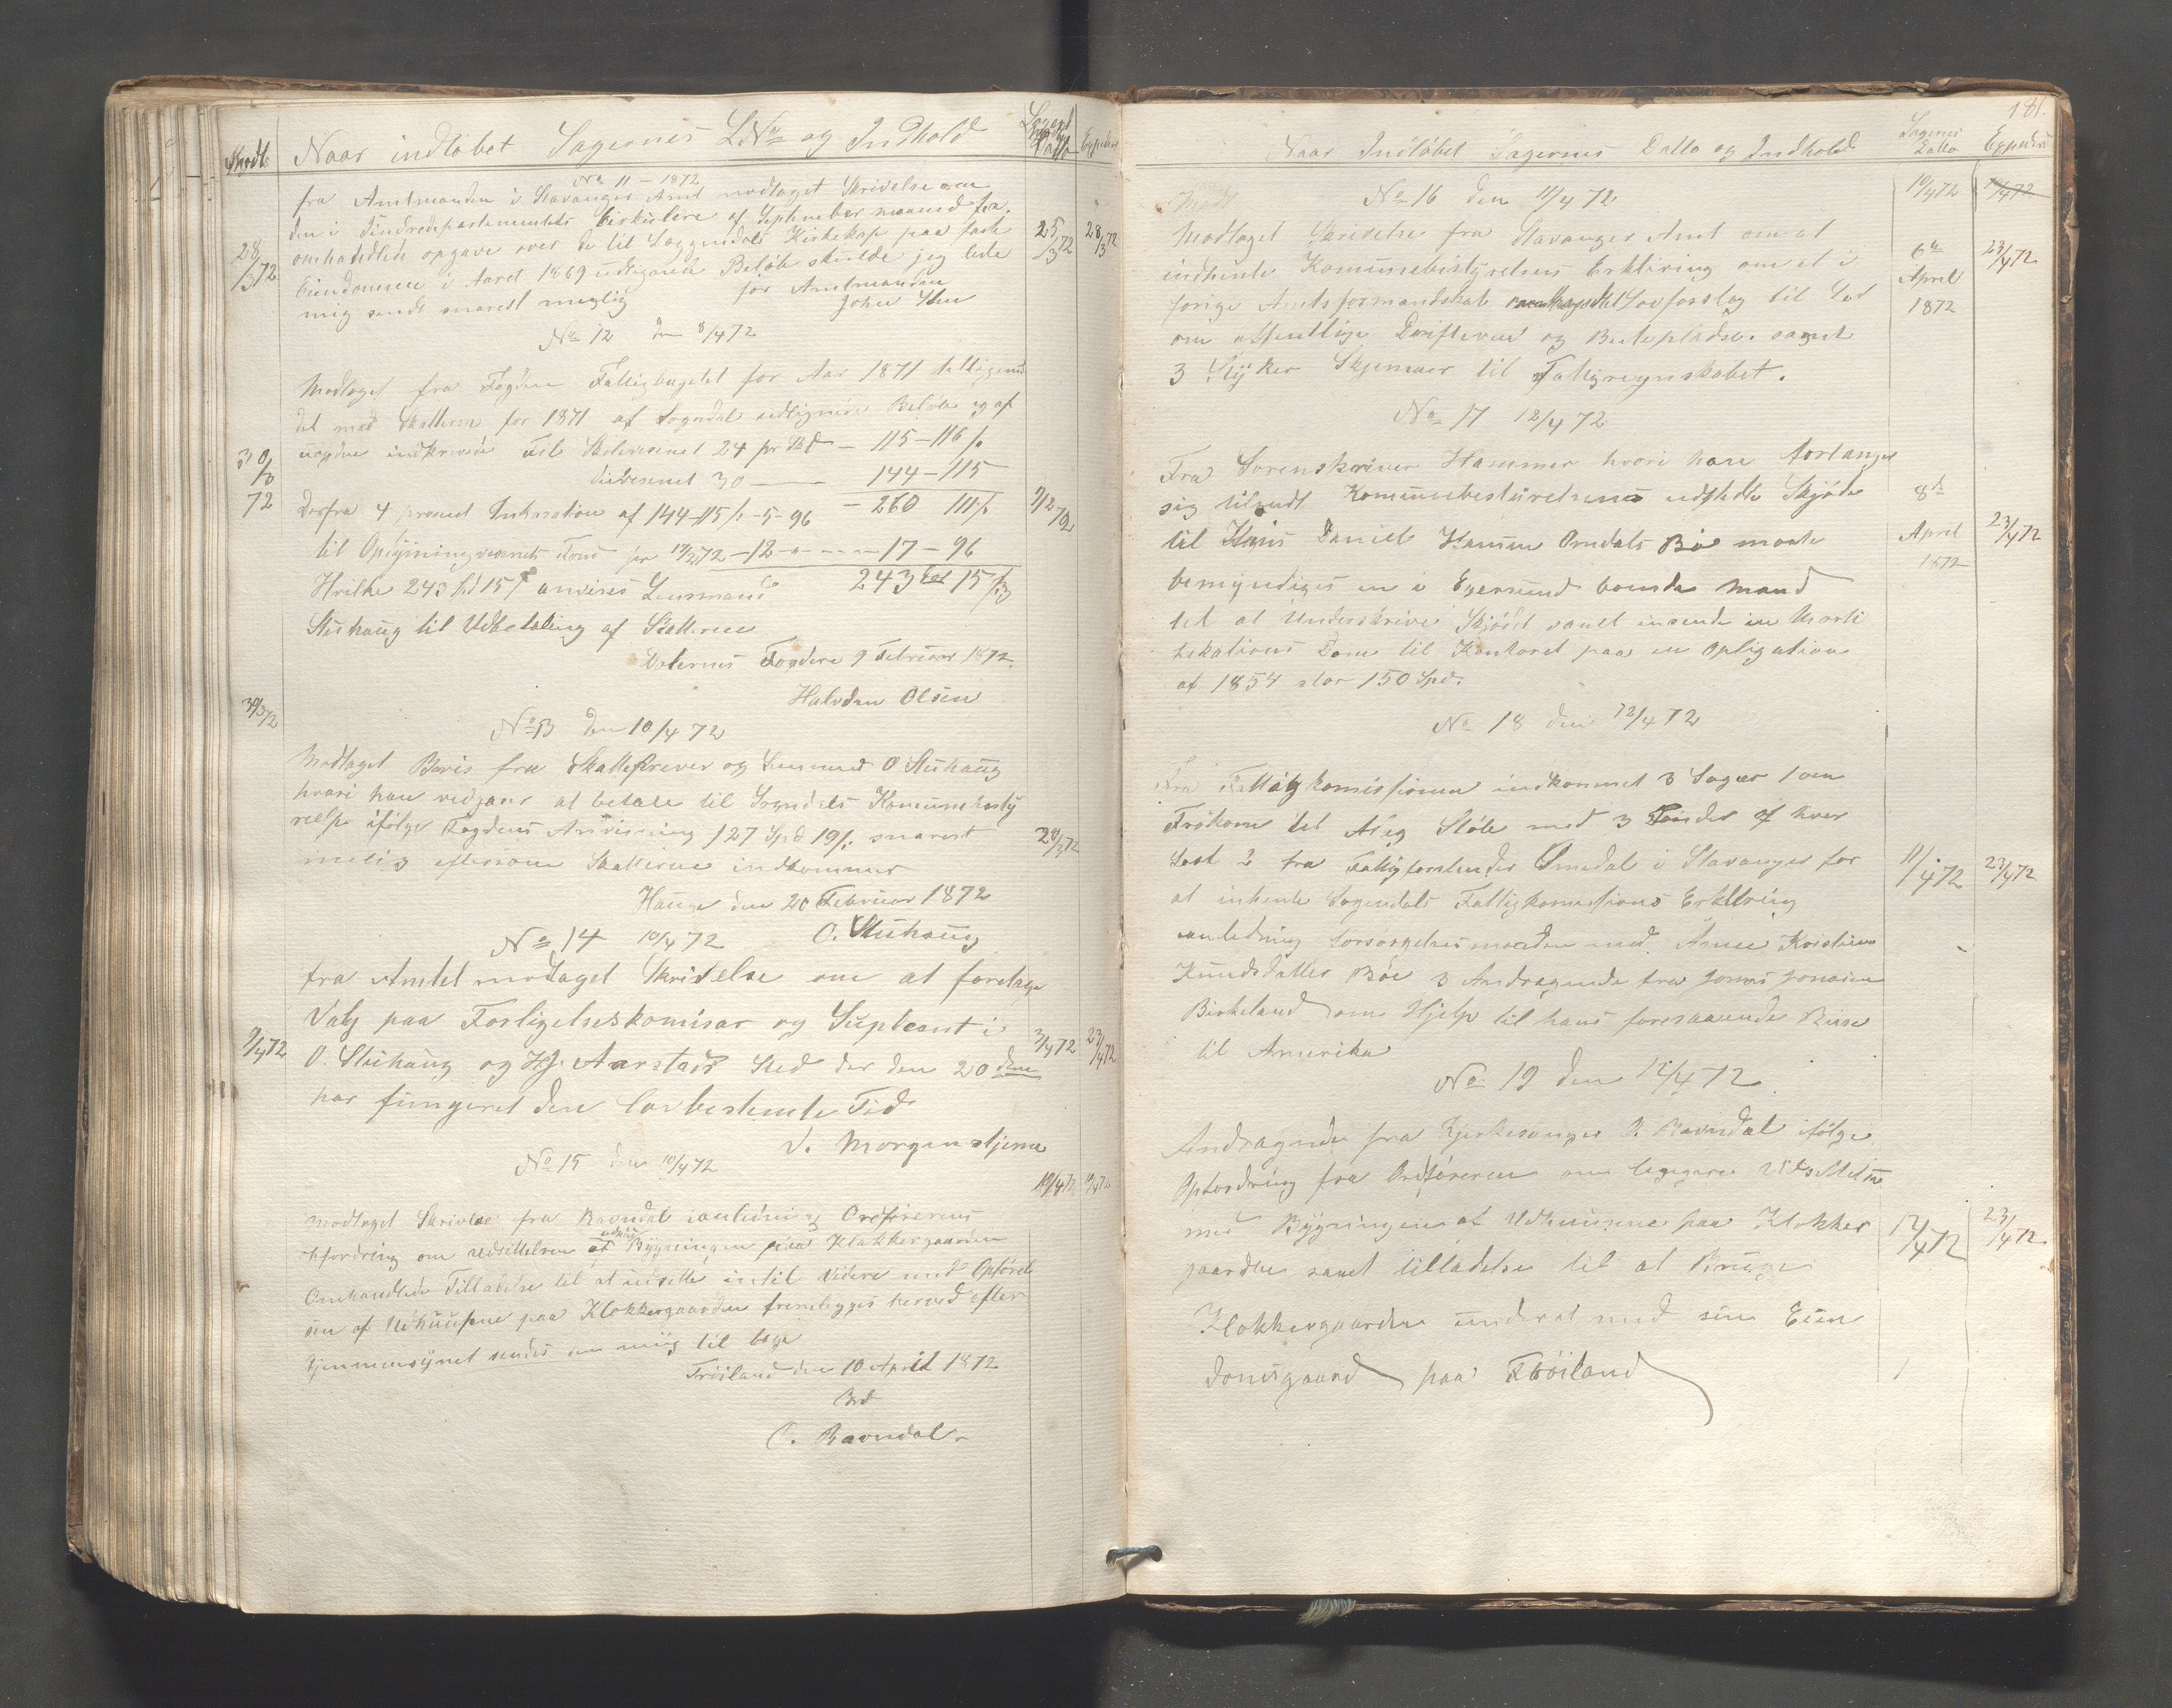 Naar indløbet Sagernes LNo og Indhold
No 11 – 1872
fra Amtmanden i Stavanger Amt modtaget Skrivelse om
den i Indredepartementets Cirkulere af September maaned fra.
omhandlede opgave over de til Soggendals Kirke paa faste
Eiendomme i Aaret 1869 udlignede Beløb skulde jeg bede
mig sendt snarest muelig for Amtmanden
28/3 72
25/3 72
28/3 72
No 12 den 8/4 72
Modtaget fra Fogden Fattigbugettet for Aar 1871
det med Skatterne for 1871 af Sogndal udlignede Beløb og af
indkrevede Til Skolevesenet 24 pr Skd – 115–116 s.
30 — 144–115
30/3 72
Derfra 4 procent Inkasation af 144–115 s. –5–96 – 260 111 s.
9/2 72
til Oplysningvesenets Fond pr 13/2 72 –12 – – – 17–96
Hvilke 243 Spd 15 s anvises Lensmand 243 15 s.
Stuhaug til Udbetaling af Skatterne
Dalernes Fogderi 9 Februar 1872.
Halvdan Olsen
30/3 72
No 13 den 10/4 72
Modtaget Bevis fra Skatteskrever og Lensmand O Stuhaug
hvori han vedgaar at betale til Sogndals Komunebesty
relse ifølge Fogdens Anvisning 127 Spd 19 s. snarest
muelig eftersom Skatterne indkommer
28/3 72
Hauge den 20 Februar 1872
O. Stuhaug
No 14 10/4 72
fra Amtet modtaget Skrivelse om at foretage
Valg paa Forligelseskomisær og Supleant i
O. Stuhaug og Aarstads Sted der den 20 den
9/4 72
3/4 72
23/4 72
har fungeret den lovbestemte Tid
V. Morgenstjerne
No 15 den 10/4 72
10/4 72
Modtaget Skrivelse fra Ravndal ianledning Ordførerens
om udsettelsen af Bygningen paa Klokkergaarden
Omhandlede Tilladelse til at udsette indtil Videre med Opførel
sen af Udhuusene paa Klokkergaarden fremlegges herved efter
Gjennemsynet sendes den mig tilbage
Frøiland den 10 April 1872
Brd
O. Ravndal
181.
Naar Indløbet Sagernes Datto og Indhold
Sagernes Datto
No 16 den 11/4 72
10/4 72
Modtaget Skrivelse fra Stavanger Amt om at
indhente Komunebestyrelsens Erkliring om et i
forige Amtsformandskab Lovforslag til Lov
om offentlige Drifteveie og Bedepladse. samt
3 Stÿker Skjemaer til Fattigregnskabet.
6te April 1872
23/4 72
No 17 12/4 72
Fra Sorenskriver Hammer hvori han forlanger
sig tilsendt Komunebestürelsens udstedte Skjøde
til Hans Daniel Hansen Orrudals Bø maate
bemyndiges en i Egersund boende Mand
til at Underskrive Skjødet samt insende en Morti
fikations Dom til Kontoret paa en Opligation
af 1854 stor 150 Spd.
8de April 1872
23/4 72
No 18 den 12/4 72
Fra Fattigkomissionen indkommet 3 Sager 1 om
Frøkorn til Aleg Støle med 3 Tønder af hver
Sort 2 fra Fattigforstander Omdal i Stavanger for
at inhente Sogndals Fattigkomissions Erklering
anledning forsørgelsesmaaden med Anne Kristine
Knudsdatter Bøe 3 Andragende fra Jonas Jonasen
Birkeland om Hjelp til hans forestaaende Reise
til Amerika
11/4 72
23/4 72
No 19 den 12/4 72
Andragende fra Kjerkesanger O. Ravndal ifølge
Opfordring fra Ordføreren om Udsettelse
med Bÿgningen af Udhuusene paa Klokker
gaarden samt tilladelse til at Bruge
Klokkergaarden underet med sin Eien
domsgaard paa Frøiland
12/4 72
23/4 72